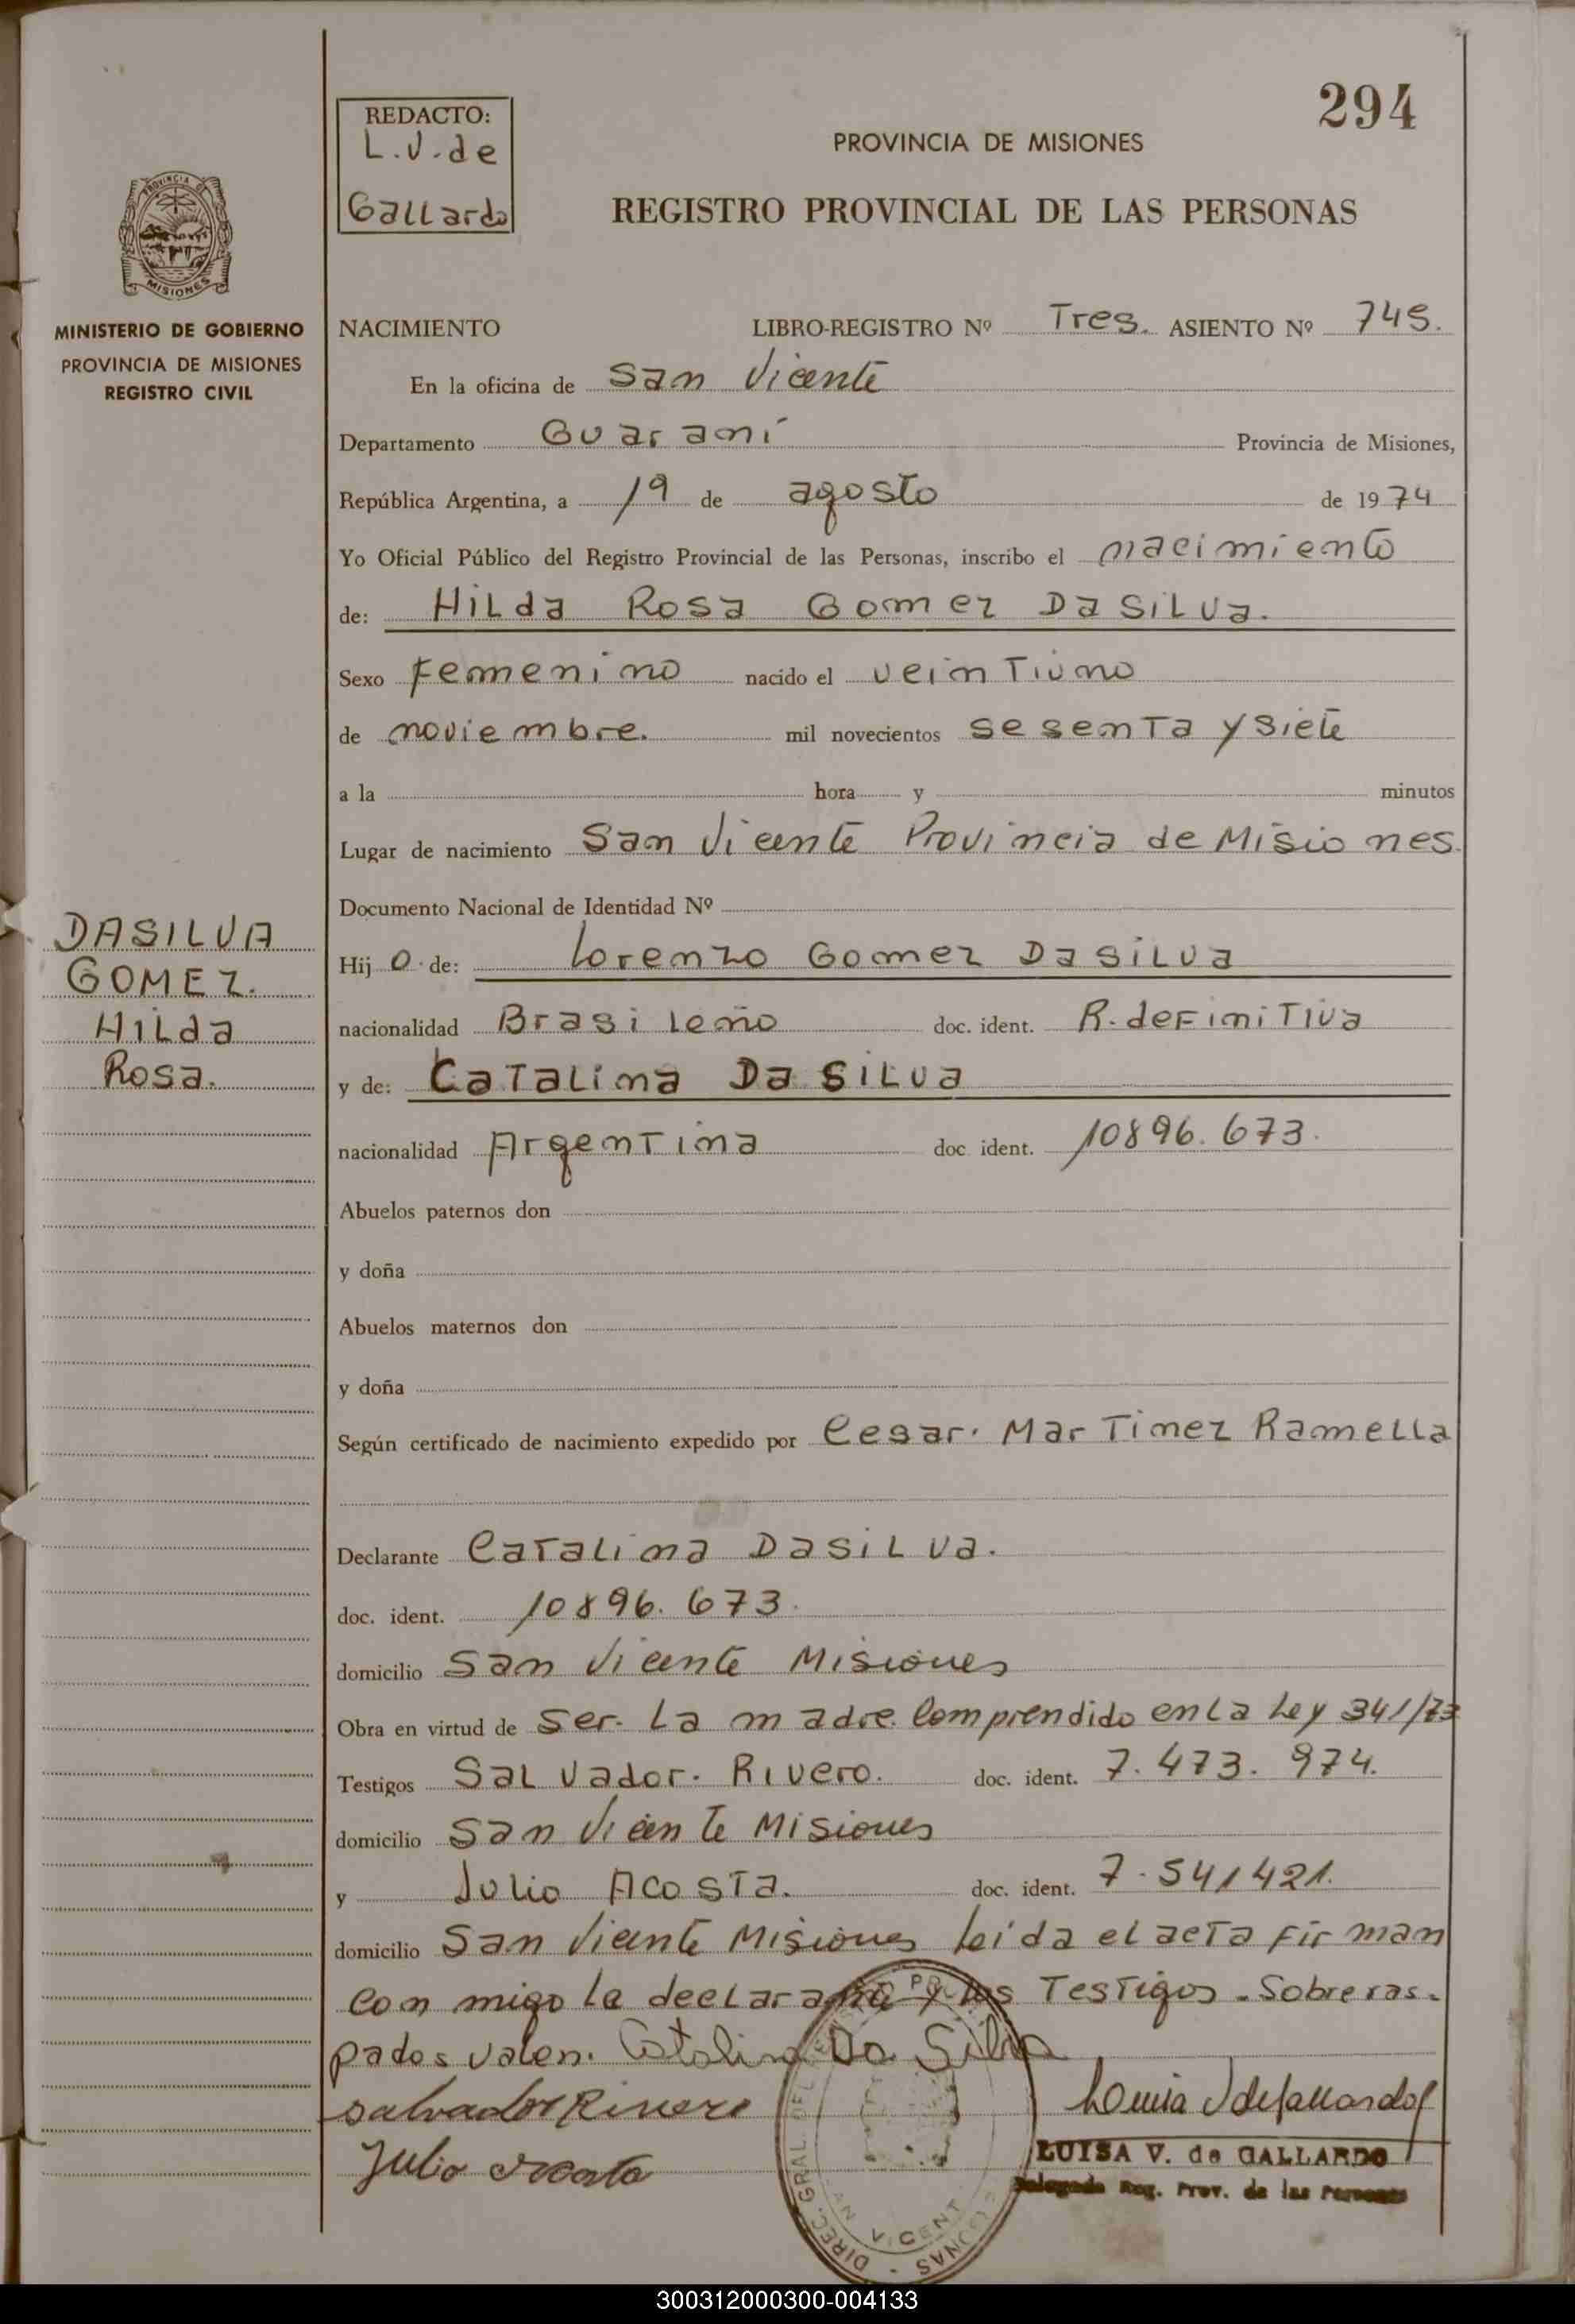 294
REDACTO:
L.V. de
Gallardo
PROVINCIA DE MISIONES
REGISTRO PROVINCIAL DE LAS PERSONAS
PROVINCIA DE
MISIONES
MINISTERIO DE GOBIERNO
PROVINCIA DE MISIONES
REGISTRO CIVIL
NACIMIENTO LIBRO-REGISTRO Nº Tres. ASIENTO Nº 745.
En la oficina de San Vicente
Departamento Guaraní Provincia de Misiones,
República Argentina, a 19 de agosto de 1974
Yo Oficial Público del Registro Provincial de las Personas, inscribo el nacimiento
de: Hilda Rosa Gomez Da Silva.
Sexo Femenino nacido el veintiuno
de noviembre. mil novecientos sesenta y siete
a la hora y minutos
Lugar de nacimiento San Vicente Provincia de Misiones.
Documento Nacional de Identidad Nº
DASILVA
GOMEZ.
Hilda
Rosa.
Hij o de: Lorenzo Gomez Da Silva
nacionalidad Brasileño doc. ident. R. definitiva
y de: Catalina Da Silva
nacionalidad Argentina doc. ident. 10896.673.
Abuelos paternos don
y doña
Abuelos maternos don
y doña
Según certificado de nacimiento expedido por Cesar. Martinez Ramella
Declarante Catalina Dasilva.
doc. ident. 10896.673.
domicilio San Vicente Misiones
Obra en virtud de Ser. La madre. Comprendido en La Ley 341/73
Testigos Salvador. Rivero. doc. ident. 7.473.974.
domicilio San Vicente Misiones
y Julio Acosta. doc. ident. 7.541421.
domicilio San Vicente Misiones Leída el acta firman
con migo la declarante y los Testigos. Sobreras.
pados valen. Catalina Da Silva
Salvador Rivero
Luisa V de Gallardo
Julio Acosta
LUISA V. de GALLARDO
Delegada Reg. Prov. de las Personas
300312000300-004133